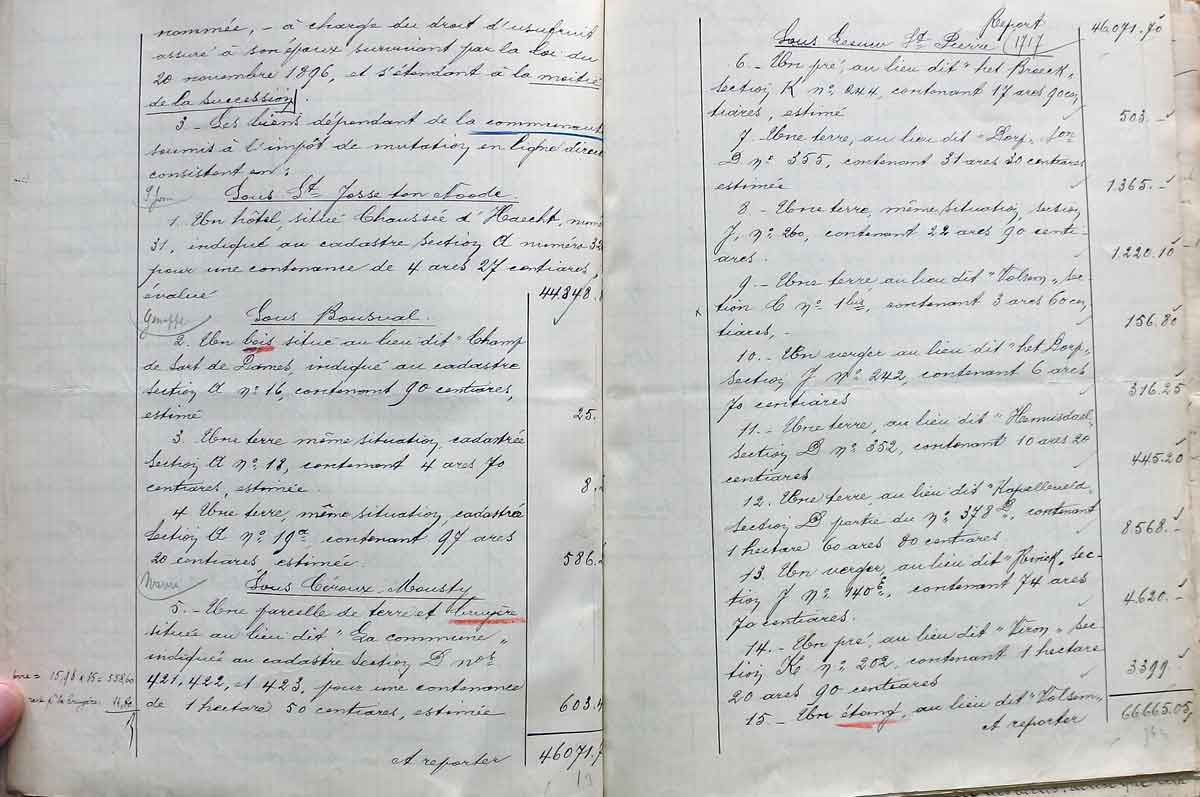 nommée, - à charge du droit d'usufruit
assuré à son époux survivant par la loi du
20 novembre 1896, et s'étendant à la moitié
de la succession.
3 - Les biens dépendant de la communauté
soumis à l'impôt de mutation en ligne directe
consistent en:
Sous St Josse ten Noode
1. Un hôtel, situé Chaussée d'Haecht, numéro
31, indiqué au cadastre section A numéro 32
pour une contenance de 4 ares 27 centiares,
évalué 44848.
Genappe
Sous Bousval.
2. Un bois situé au lieu dit "Champ
de Sart de Dames, indiqué au cadastre
section A nº 16, contenant 90 centiares,
estimé 25.
3. Une terre même situation, cadastrée
section A nº 18, contenant 4 ares 70
centiares, estimée. 8.
4 Une terre, même situation, cadastrée
section A nº 19a contenant 97 ares
20 centiares, estimée. 586.
Wavre
Sous Céroux-Mousty
5. - Une parcelle de terre et bruyère
située au lieu dit "La commune"
indiquée au cadastre section D nos
421, 422, et 423, pour une contenance
de 1 hectare 50 centiares, estimée 603.4
A reporter 46071.7
Report 46071.70
Sous Leeuw St Pierre (1717
6 - Un pré, au lieu dit "het Broeck,
section K nº 244, contenant 17 ares 90 cen
tiares, estimé 503. -
7. - Une terre, au lieu dit "Dorp, son
D nº 355, contenant 31 ares 30 centiares
estimée 1365. -
8 - Une terre, même situation, section
J, nº 260, contenant 22 ares 90 centi-
ares. 1.220.10
9 - Une terre au lieu dit "Volsem", sec-
x tion C nº 1bis, contenant 3 ares 60 cen
tiares, - 156.80
10. - Un verger au lieu dit "het Dorp,
section J nº 242, contenant 6 ares
70 centiares 316.25
11. - Une terre, au lieu dit "Hemusdael
section D nº 352, contenant 10 ares 20
centiares 445.20
12. Une terre au lieu dit "Kapelleveld
section D partie du nº 378D, contenant
1 hectare 60 ares 80 centiares 8568. -
13. Un verger, au lieu dit sec-
tion J nº 140c, contenant 74 ares
70 centiares. 4.620. -
14. - Un pré, au lieu dit "Viron", Sec
tion K nº 202, contenant 1 hectare
20 ares 90 centiares 3399
15 - Un étang, au lieu dit "Volsem,
A reporter 66665.05